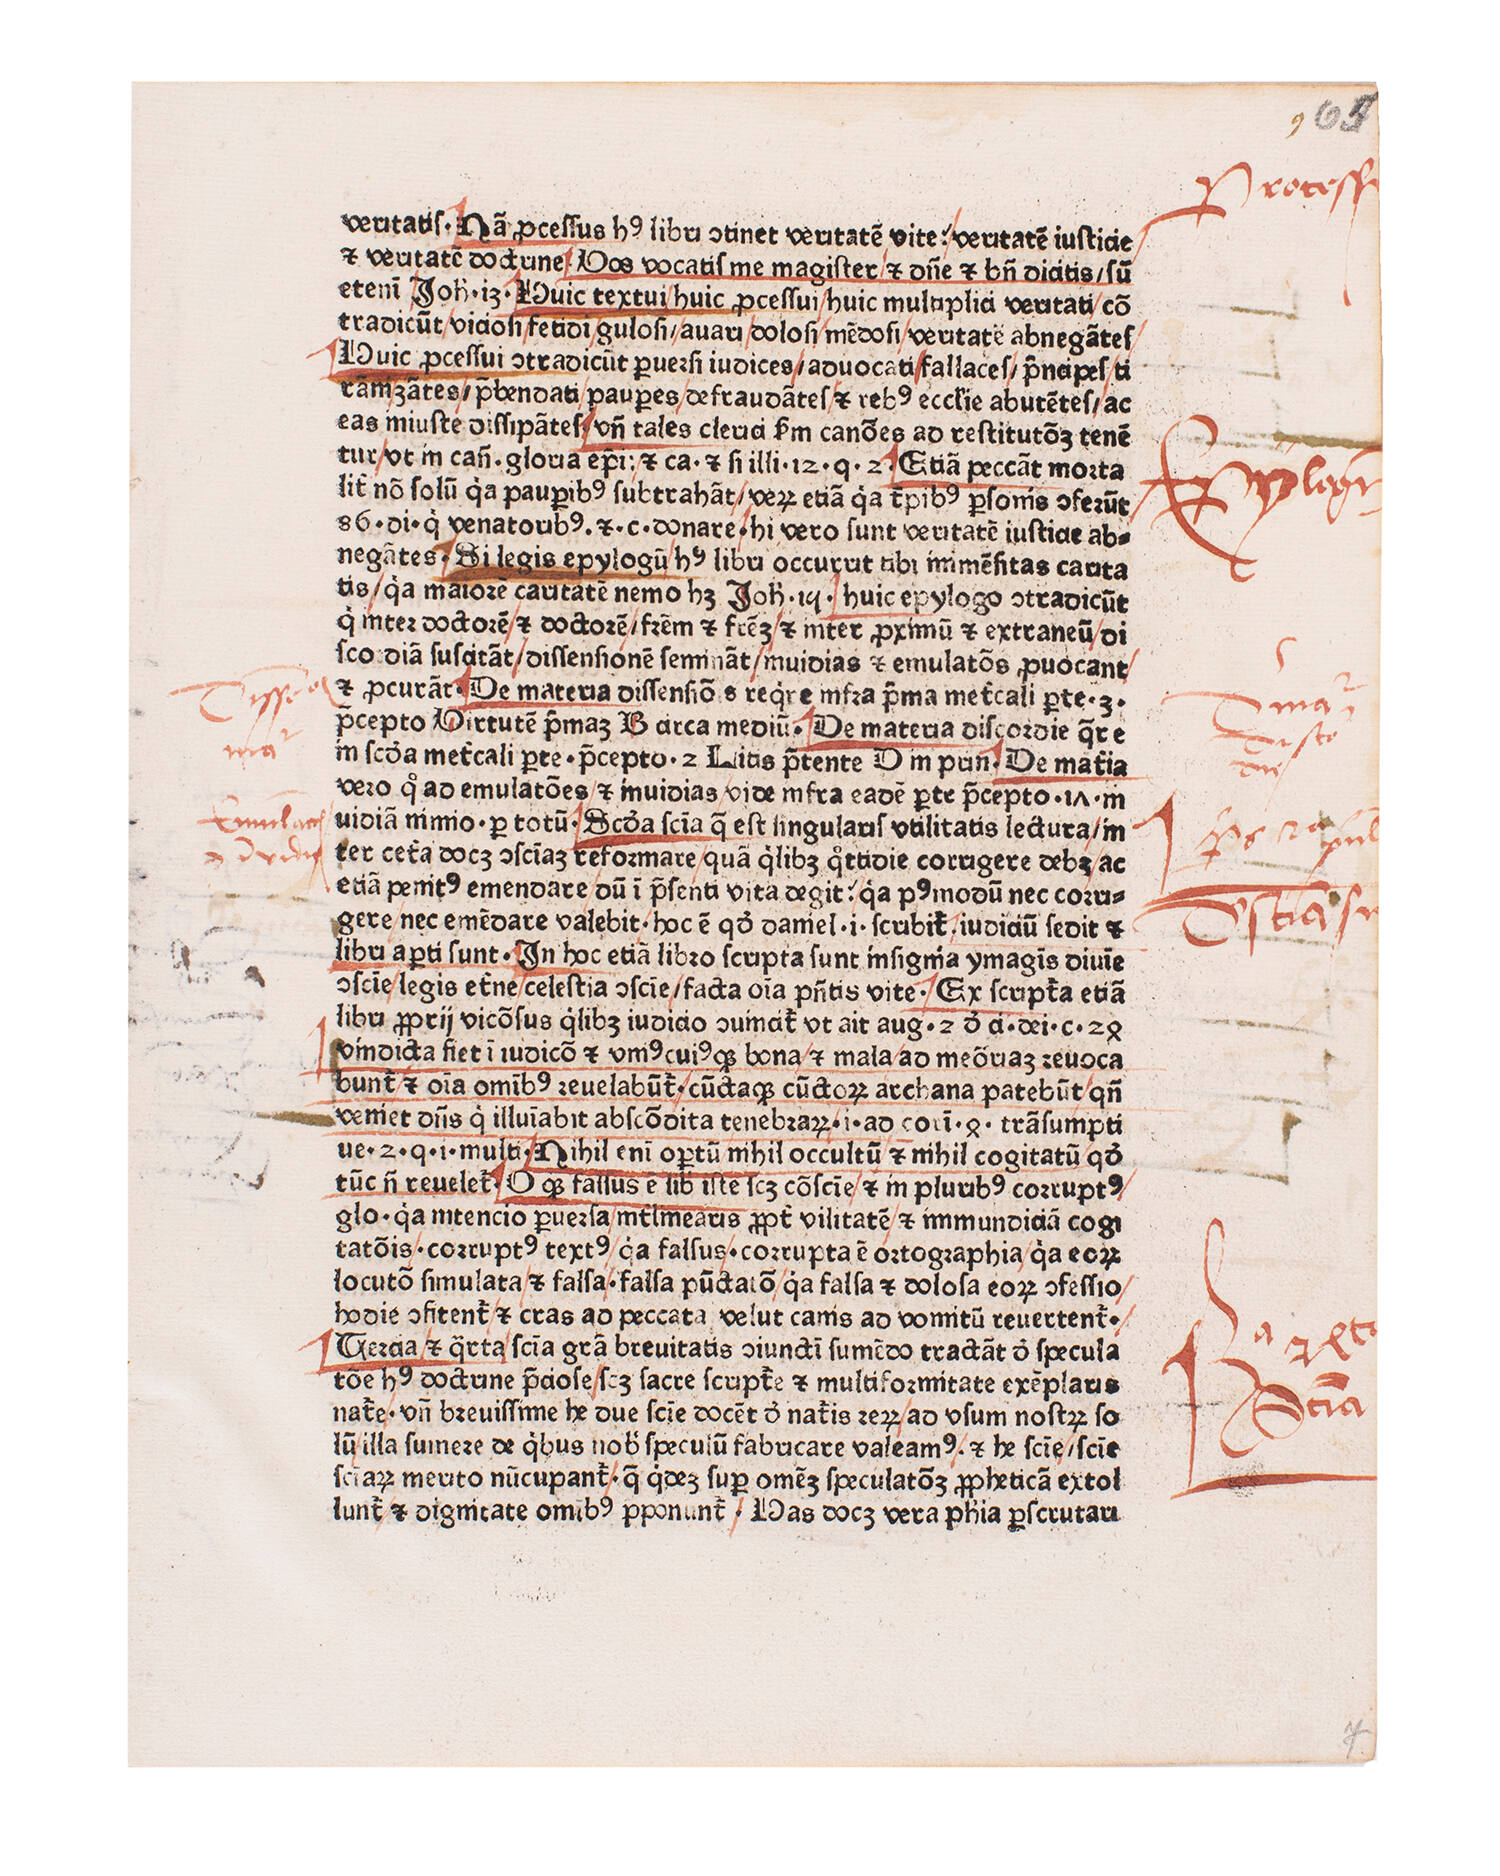 9 65
Processu
veritatis· Nā ꝓcessus hꝰ libri ↄtinet veritatē vite:/veritatē iusticie/
⁊ veritatē doctrine· Vos vocatis me magister/⁊ dn̄e ⁊ bn̄ dicitis/sū
etenī Joh̄·13· Huic textui/huic ꝓcessui/huic multiplici veritati/cō
tradicūt/viciosi/fetidi/gulosi/auari/dolosi/mēdosi/veritatē abnegātes/
Huic ꝓcessui ↄtradicūt ꝑuersi iudices/aduocati/fallaces/pͥncipes/ti
rānizātes/p̄bendati/pauꝑes/defraudātes/⁊ rebꝰ ecclīe abutētes/ac
eas miuste dissipātes/ vn̄ tales clerici fm canōes ad restitutōꝫ tenē
tur/vt in can̄·gloria ep̄i·⁊ ca·⁊ si illi·12·q·2· Etiā peccāt morta
lit̄ nō solū qͥa pauꝑibꝰ subtrahāt/veꝝ etiā qͥa t̄pibꝰ ꝑsonis ↄferūt/
86·di·qͥ venatoribꝰ·⁊·c·donare·hi vero sunt veritatē iusticie ab⸗
negātes· Si legis epylogū hꝰ libri occurrit tibi immēsitas carita
tis/qͥa maiorē caritatē nemo hꝫ Joh̄·15·huic epylogo ↄtradicūt
qͥ inter doctorē ⁊ doctorē/frēm ⁊ frēꝫ/⁊ inter ꝓximū ⁊ extraneū/di
scordiā suscitāt/dissensionē semināt/inuidias ⁊ emulatōs ꝓuocant/
⁊ ꝓcurāt· De materia dissensiōs reqͥre infra p̄ma met̄cali ꝑte·3·
p̄cepto Virtutē p̄maꝫ B circa mediū· De materia discordie qͥre
in scd̓a met̄cali ꝑte·p̄cepto·2 Litis p̄tente D in prin· De mat̄ia
vero qͦ ad emulatōes ⁊ inuidias vide infra eadē ꝑte p̄cepto·17·in
uidiā nimio·ꝑ totū· Scd̓a scīa q̄ est singularis vtilitatis lectura/in
ter cet̄a docꝫ ↄscīaꝫ reformare/quā qͥlibꝫ qͦtidie corrigere debꝫ/ac
etiā penitꝰ emendare/dū ī p̄senti vita degit:/qͥa pꝰmodū nec corri⸗
gere/nec emēdare valebit·hoc ē qd̓ daniel·i·scribit̄/iudiciū sedit ⁊
libri aꝑti sunt· In hoc etiā libro scripta sunt insignia ymagīs diuīe
ↄscīe/legis et̄ne/celestia ↄscīe/facta oīa pn̄tis vite· Ex script̄a etiā
libri ꝓprij vicōsus qͥlibꝫ iudicio ↄuincit̄ vt ait aug·2 d̓ ci·dei·c·28
vindicta fiet ī iudicō ⁊ vniꝰcuiꝰqꝫ bona/⁊ mala/ad meōriaꝫ reuoca
bunt̄/⁊ oīa omībꝰ reuelabūt̄·cūctaqꝫ cūctoꝝ archana patebūt/qn̄
veniet dn̄s qͥ illuīabit abscōdita tenebraꝝ·i·ad corī·8·trāsumpti
ue·2·q·1·multi· Nihil enī oꝑtū nihil occultū ⁊ nihil cogitatū qd̓
tūc n̄ reuelet̄· O qꝫ falsus ē lib̓ iste scꝫ cōscīe/⁊ in pluribꝰ corruptꝰ/
glo·qͥa intencio ꝑuersa/int̄linearis ꝓpt̄ vilitatē/⁊ immundiciā cogi
tatōis·corruptꝰ textꝰ/qͥa falsus·corrupta ē ortographia/qͥa eoꝝ
locutō simulata ⁊ falsa·falsa pūctatō/qͥa falsa ⁊ dolosa eoꝝ ↄfessio/
hodie ↄfitent̄/⁊ cras ad peccata velut canis ad vomitū reuertent̄·
Tercia/⁊ qͣrta/scīa grā breuitatis ↄiunctī sumēdo tractāt d̓ specula
tōe hꝰ doctrine p̄ciose/scꝫ sacre script̄e ⁊ multiformitate exēplaris
nat̄e·vn̄ breuissime he due scīe docēt d̓ nat̄is reꝝ/ad vsum nostꝝ so
lū/illa sumere de qͥbus nob̓ speculū fabricare valeamꝰ·⁊ he scīe/scīe
scīaꝝ merito nūcupant̄·q̄ qͥdeꝫ suꝑ omēꝫ speculatōꝫ ꝓpheticā extol
lunt̄/⁊ dignitate omībꝰ p̄ponunt̄/ Has docꝫ vera ph̓ia ꝑscrutari
Epylogꝰ
Scīa